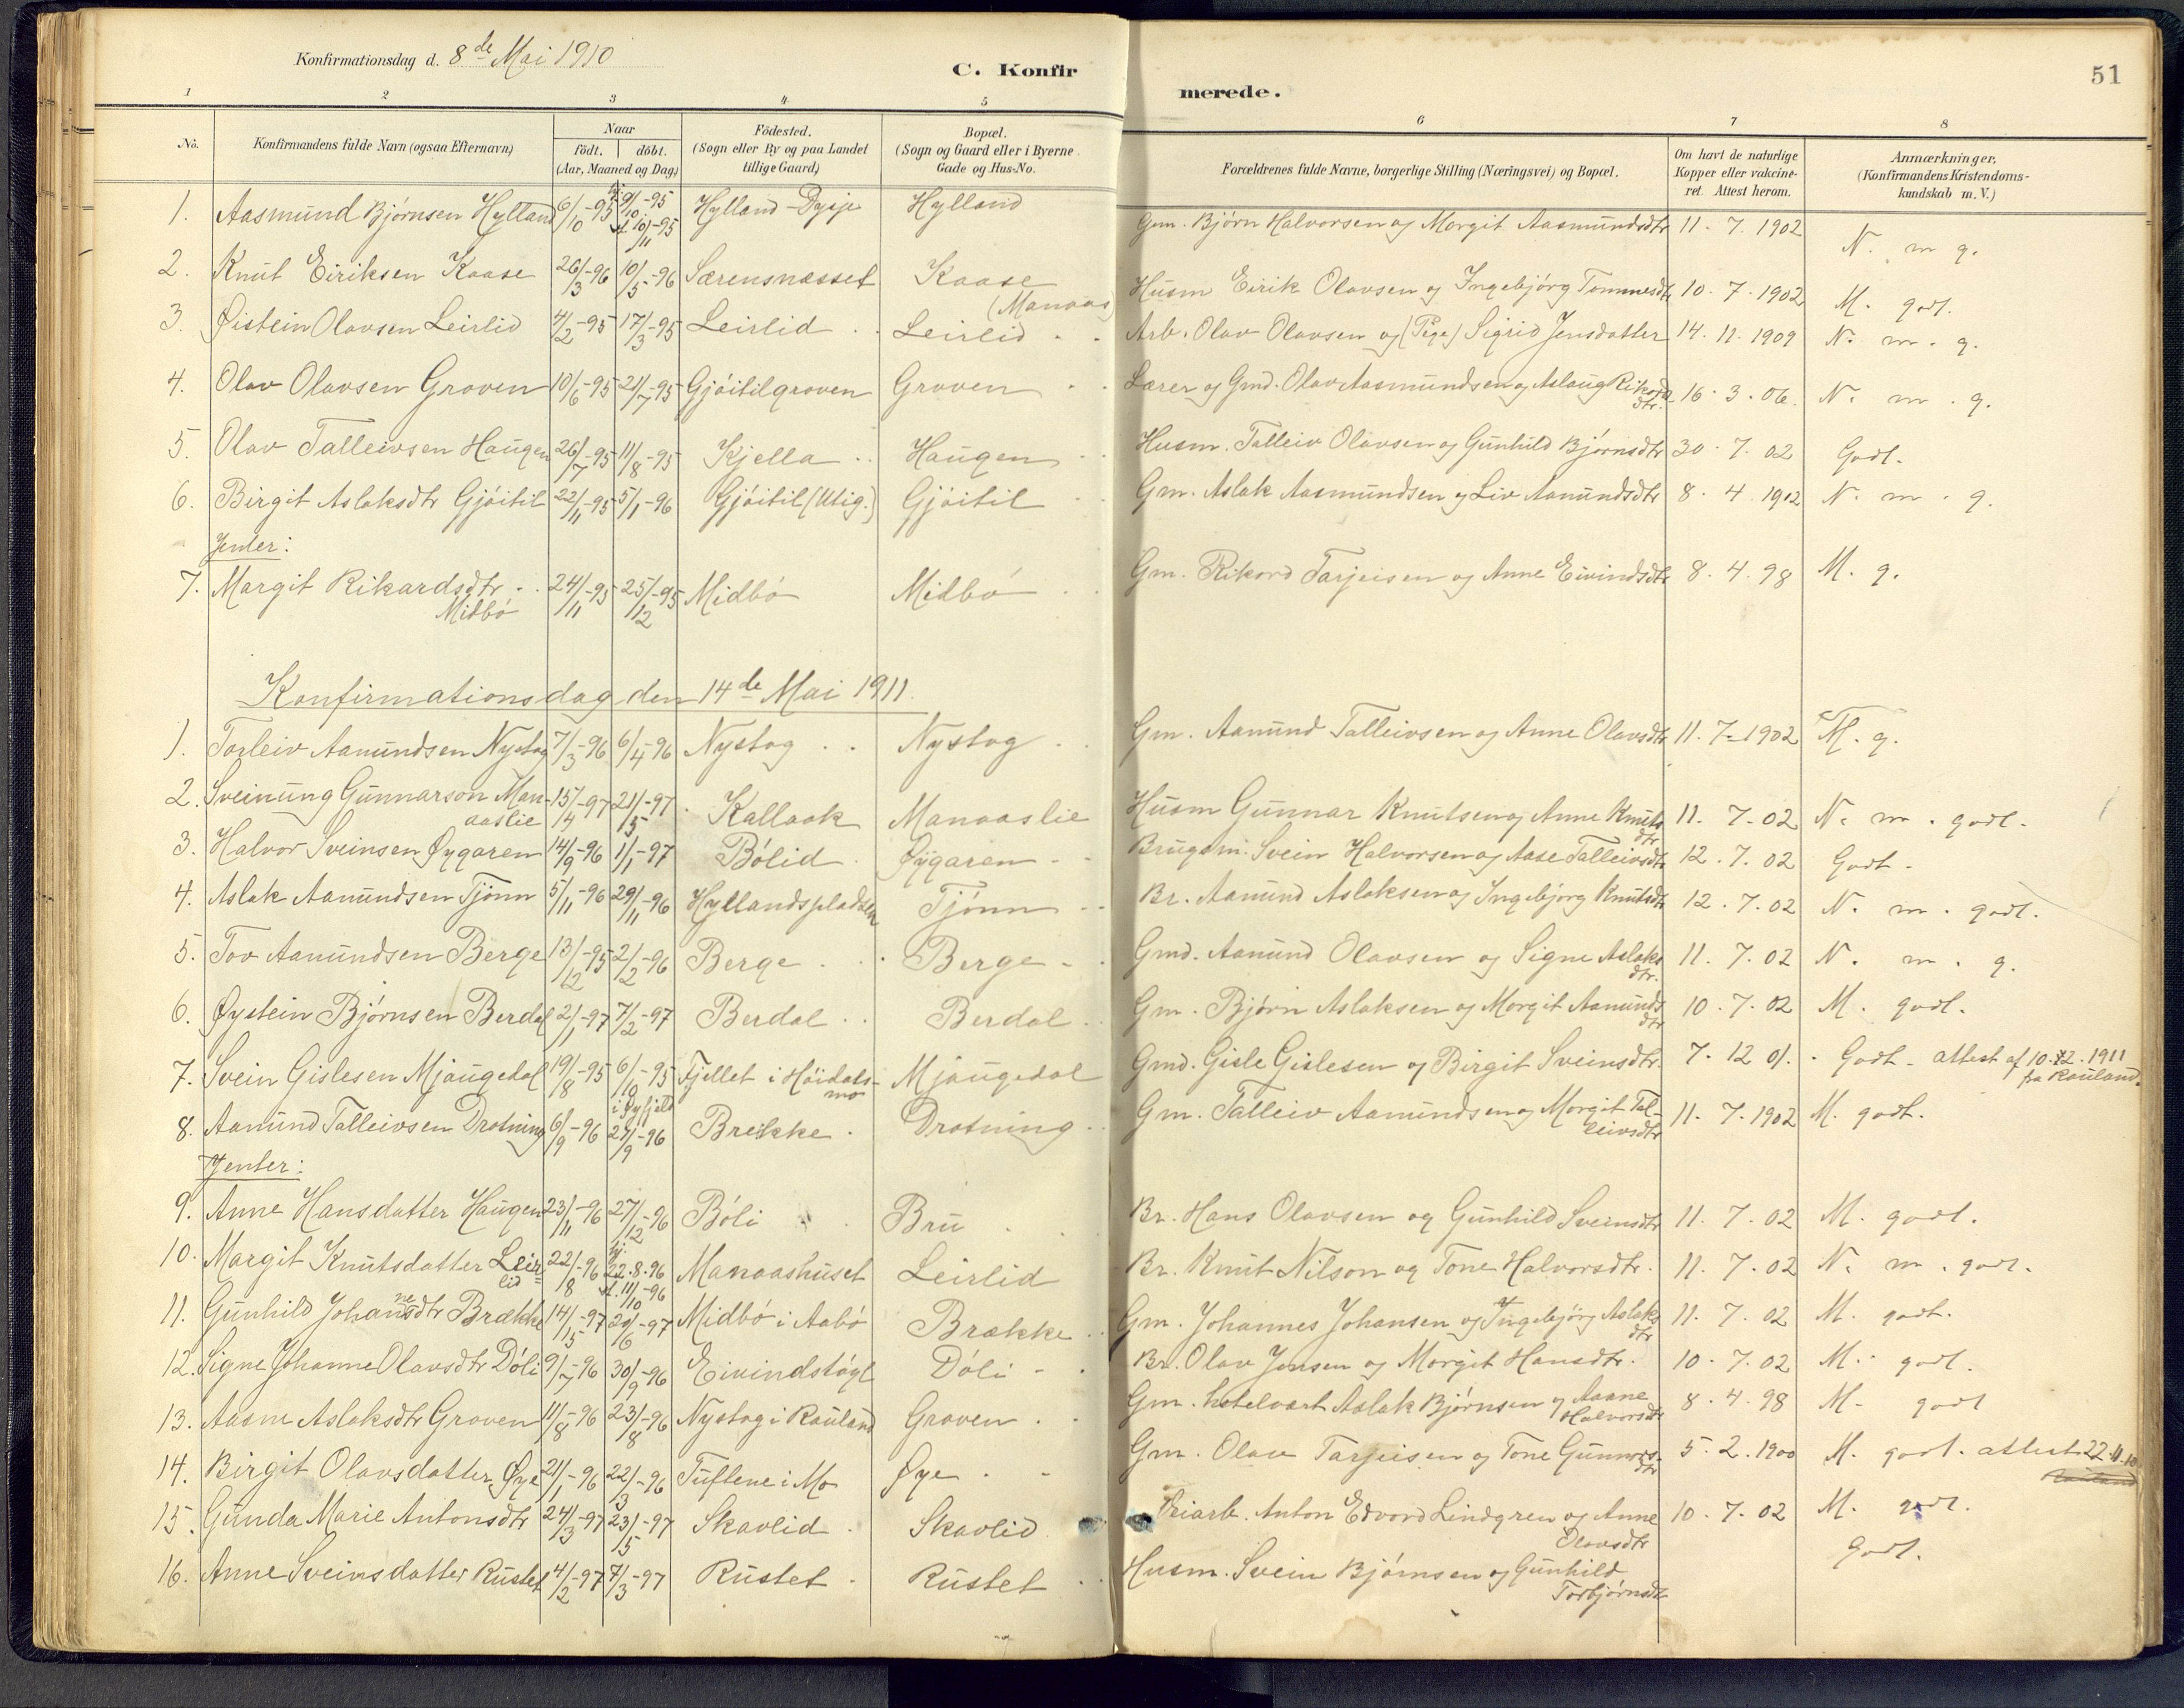 Konfirmationsdag d. 8de Mai 1910
C. Konfirmerede.
51
1 2 3 4 5 6 7 8
No. | Konfirmandens fulde Navn (ogsaa Efternavn) | Naar født. | døbt. (Aar, Maaned og Dag) | Födested. (Sogn eller By og paa Landet tillige Gaard) | Bopæl. (Sogn og Gaard eller i Byerne Gade og Hus-No. | Forældrenes fulde Navne, borgerlige Stilling (Næringsvei) og Bopæl. | Om havt de naturlige Kopper eller vakcineret. Attest herom. | Anmærkninger, (Konfirmandens Kristendomskundskab m. V.)
1. Aasmund Bjørnsen Hylland 6/10-95 hj. 9/10-95 st. 10/11-95 Hylland-Dysje Hylland Gm. Bjørn Halvorsen og Margit Aasmundsdtr 11.7.1902 N. m g.
2. Knut Eiriksen Kaase 26/3-96 10/5-96 Særensnæsset Kaase (Manaas) Husm Eirik Olavsen og Ingebjørg Tommesdtr 10.7.1902 M. godt.
3. Øistein Olavsen Leirlid 4/2-95 17/3-95 Leirlid Leirlid Arb. Olav Olavsen og (Pige) Sigrid Jensdatter 14.11.1909 N. m. g.
4. Olav Olavsen Groven 10/6-95 21/7-95 Gjøitilgroven Groven Lærer og Gmd. Olav Aasmundsen og Aslaug Rikorddtr. 16.3.06. N. m. g.
5. Olav Talleivsen Haugen 26/7-95 11/8-95 Kjella Haugen Husm. Talleiv Olavsen og Gunhild Bjørnsdtr 30.7.02 Godt.
6. Birgit Aslaksdtr Gjøitil 22/11-95 5/1-96 Gjøitil (Utig.) Gjøitil Gm. Aslak Aasmundsen og Liv Aamundsdtr 8.4.1902 N. m. g.
Jenter:
7. Margit Rikardsdtr. Midbø 24/11-95 25/12-95 Midbø Midbø Gm. Rikard Tarjeisen og Anne Eivindsdtr 8.4.98 M. g.
Konfirmationsdag den 14de Mai 1911.
1. Torleiv Aamundsen Nystog 7/3-96 6/4-96 Nystog Nystog Gm. Aamund Talleivsen og Anne Olavsdtr 11.7.1902 M. g.
2. Sveinung Gunnarson Manaaslie 15/4-97 21/5-97 Kallaak Manaaslie Husm Gunnar Knutsen og Anne Knutsdtr 11.7.02 N. m. godt.
3. Halvor Sveinsen Øygaren 14/9-96 1/1-97 Bølid Øygaren Brugsm. Svein Halvorsen og Aase Talleivsdtr 12.7.02 Godt
4. Aslak Aamundsen Tjønn 5/11-96 29/11-96 Hyllandspladsen Tjønn Br. Aamund Aslaksen og Ingebjørg Knutsdtr 12.7.02 N. m. godt.
5. Tov Aamundsen Berge 13/12-95 2/2-96 Berge Berge Gmd. Aamund Olavsen og Signe Aslaksdtr. 11.7.02 N. m. g.
6. Øystein Bjørnsen Berdal 2/1-97 7/2-97 Berdal Berdal Gm. Bjørn Aslaksen og Margit Aamundsdtr 10.7.02 M. godt.
7. Svein Gislesen Mjaugedal 19/8-95 6/10-95 Fjellet i Høidalsmo Mjaugedal Gmd. Gisle Gislesen og Birgit Sveinsdtr. 7.12 01. Godt - attest af 10.2.1911 fra Rauland.
8. Aamund Talleivsen Drotning 6/9-96 i Øyfjeld 27/9-96 Brekke Drotning Gm. Talleiv Aamundsen og Margit Talleivsdtr 11.7.1902 M. godt.
Jenter:
9. Anne Hansdatter Haugen 23/11-96 27/12-96 Bøli Bru Br. Hans Olavsen og Gunhild Sveinsdtr 11.7.02 M. godt.
10. Margit Knutsdatter Leirlid 22/8-96 hj. 22.8.96 st. 11/10-96 Manaashuset Leirlid Br. Knut Nilson og Tone Halvorsdtr. 11.7.02 N. m. godt.
11. Gunhild Johannesdtr Brække 14/5-97 20/6-97 Midbø i Aabø Brække Gm. Johannes Johansen og Ingebjørg Aslaksdtr 11.7.02 M. godt.
12. Signe Johanne Olavsdtr Døli 9/7-96 30/9-96 Eivindstøgl Døli Br. Olav Jensen og Margit Hansdtr. 10.7.02 M. godt.
13. Aasne Aslaksdtr Groven 11/8-96 23/8-96 Nystog i Rauland Groven Gm. hotelvært Aslak Bjørnsen og Aasne Halvorsdtr 8.4.98 M- godt
14. Birgit Olavsdatter Øye 21/1-96 22/3-96 Tuftene i Mo Øye Gm. Olav Tarjeisen og Tone Gunnarsdtr 5.2.1900 M. godt. attest 22.11.10
15. Gunda Marie Antonsdtr 24/3-97 23/5-97 Skavlid Skavlid Anton Edvard Lindgren og Anne Olavsdtr 10.7.02 M. godt.
16. Anne Sveinsdatter Rustet 4/2-97 7/3-97 Rustet Rustet Husm. Svein Bjørnsen og Gunhild Torbjørnsdtr Godt.